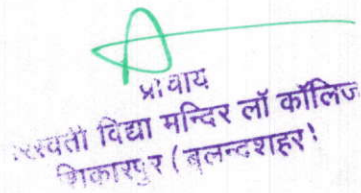 प्राचाय
सरस्वती विद्या मन्दिर लॉ कॉलिज
शिकारपुर (बुलन्दशहर)